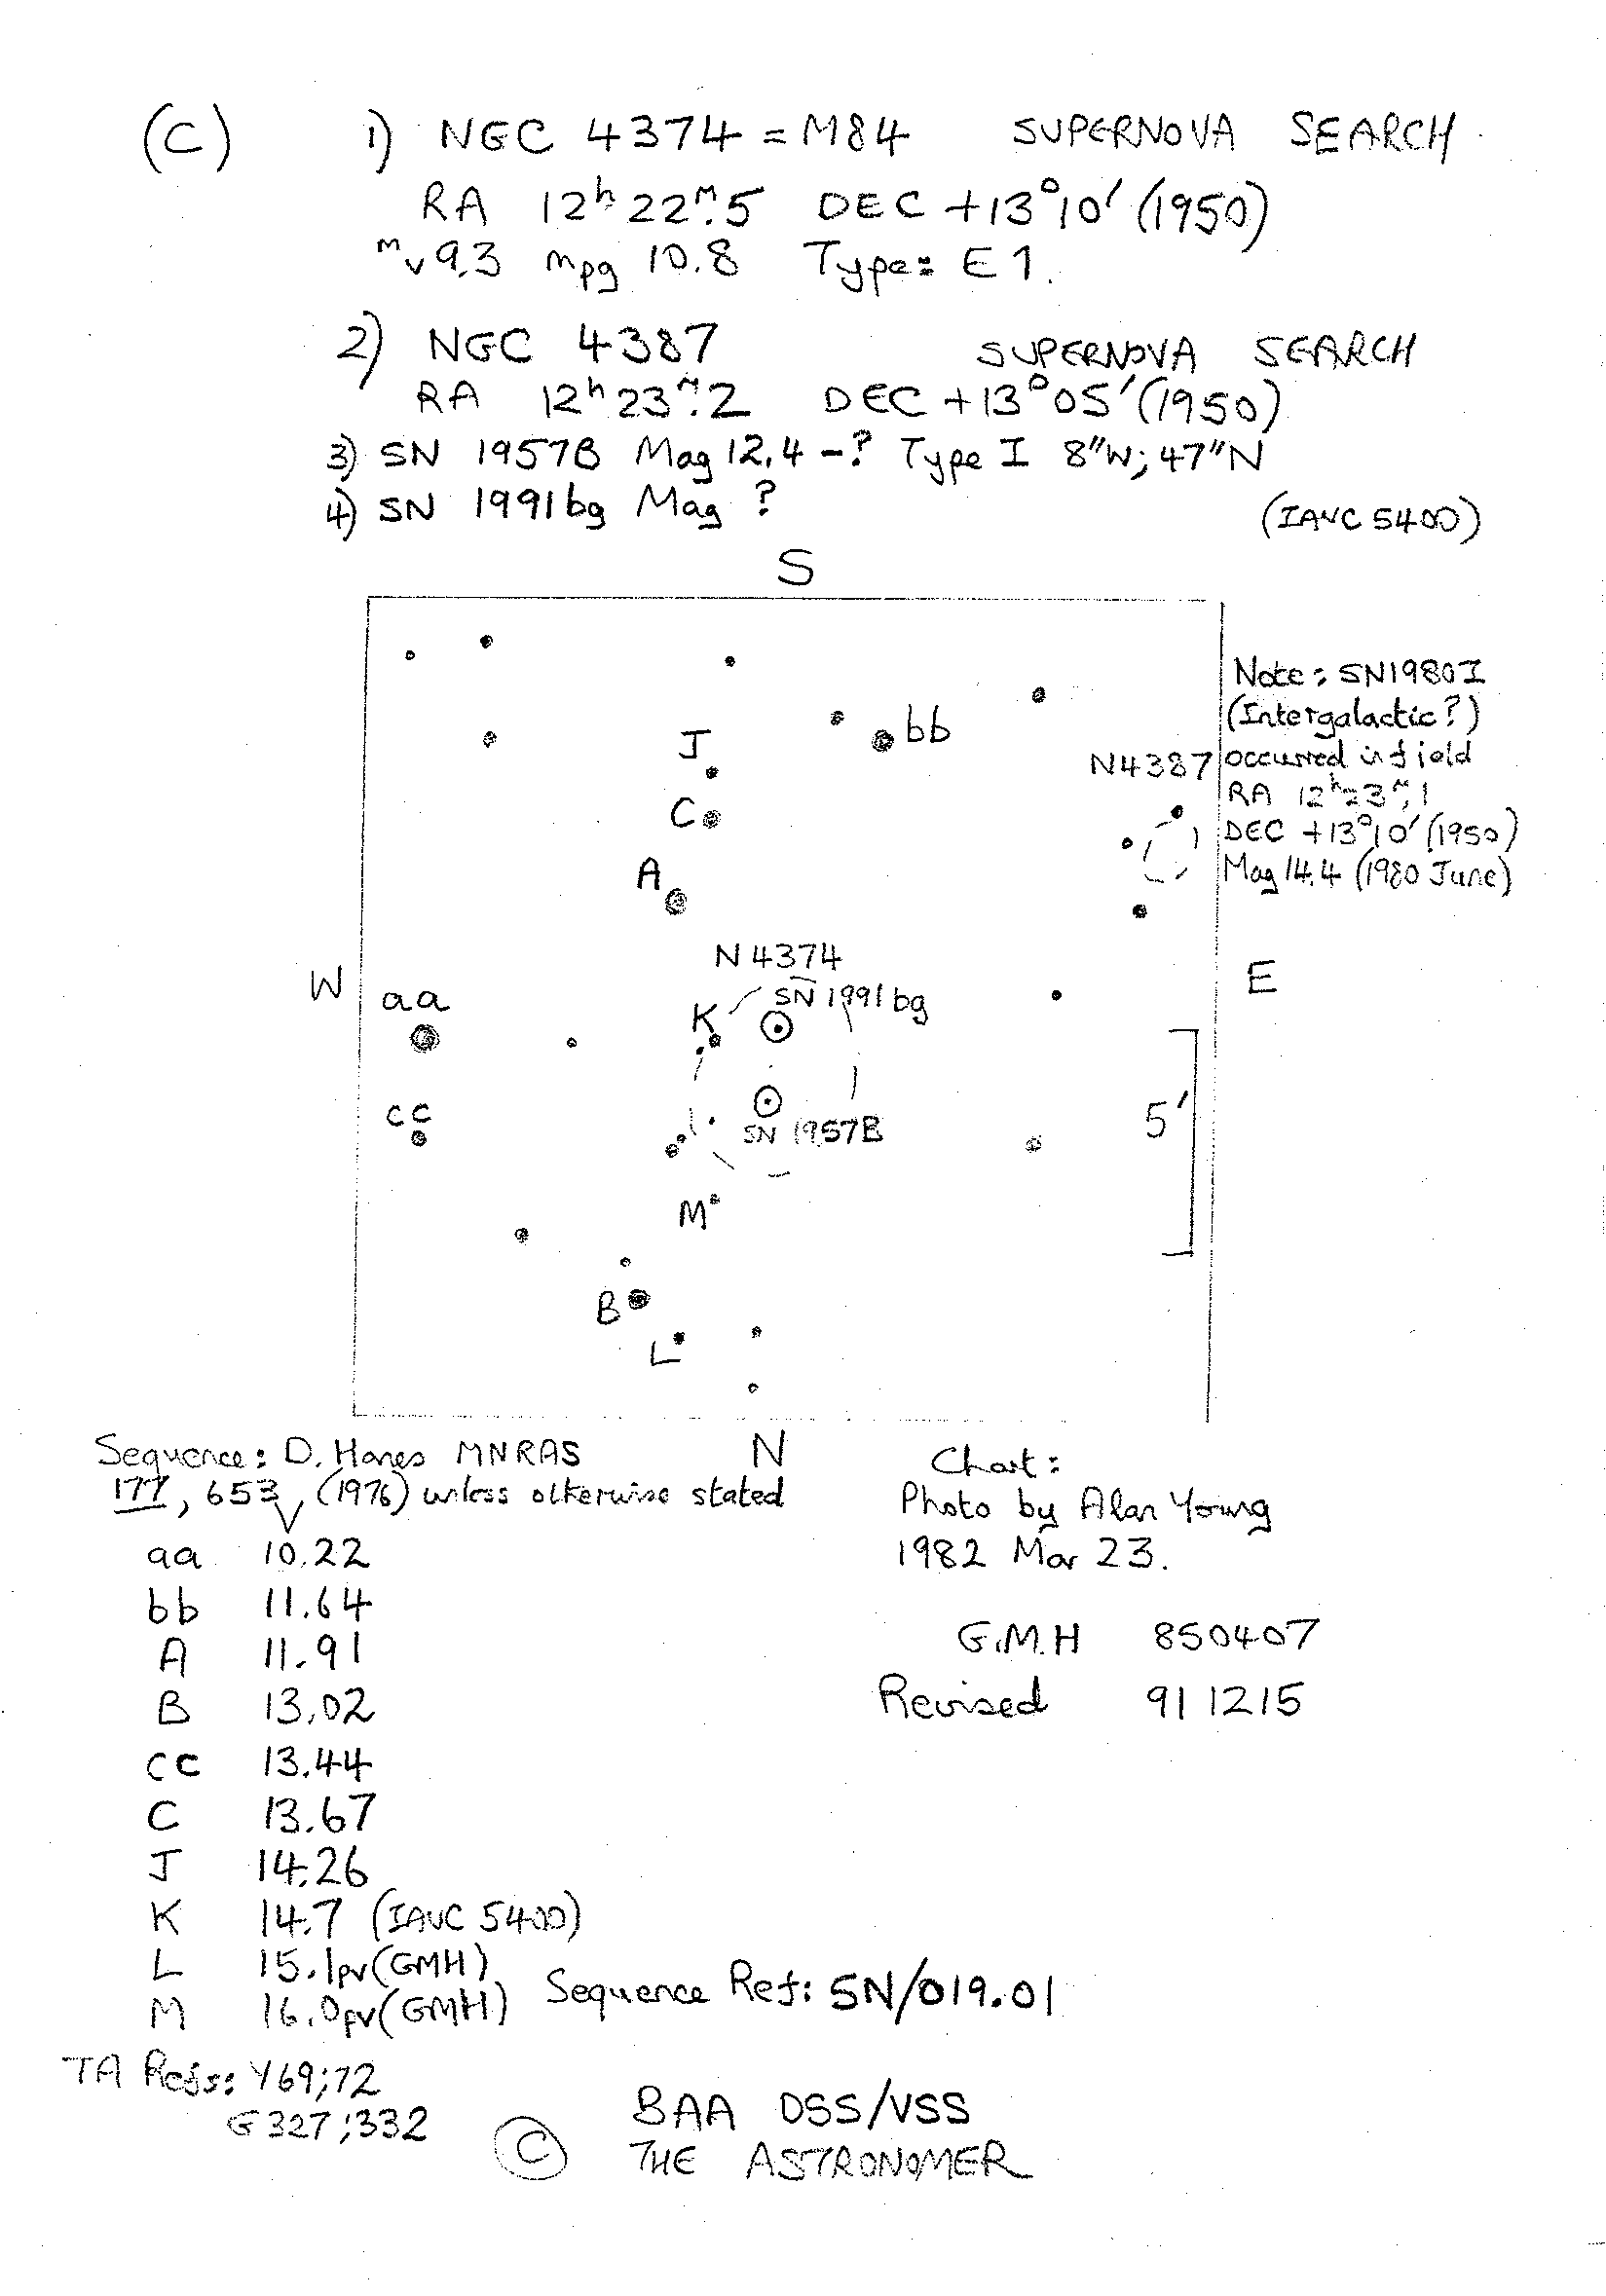 (C) 1) NGC 4374 = M84 SUPERNOVA SEARCH
RA 12ʰ22ᵐ.5 DEC +13°10′ (1950)
mv 9.3 mpg 10.8 Type: E1.
2) NGC 4387 SUPERNOVA SEARCH
RA 12ʰ23ᵐ.2 DEC +13°05′ (1950)
3) SN 1957B Mag 12.4 -? Type I 8"W; 47"N
4) SN 1991bg Mag ? (IAUC 5400)
S
Note: SN1980I
(Intergalactic?)
occurred in field
RA 12ʰ23ᵐ.1
DEC +13°10′ (1950)
Mag 14.4 (1980 June)
bb
J
N4387
C
A
N4374
W
E
aa
SN 1991bg
K
cc
5′
SN 1957B
M
B
L
N
Sequence: D. Hanes MNRAS
177, 653, (1976) unless otherwise stated
V
aa 10.22
bb 11.64
A 11.91
B 13.02
cc 13.44
C 13.67
J 14.26
K 14.7 (IAUC 5400)
L 15.1pv (GMH)
M 16.0pv (GMH)
Chart:
Photo by Alan Young
1982 Mar 23.
G.M.H 850407
Revised 911215
Sequence Ref: SN/019.01
TA Refs: Y69;72
G327;332
© BAA DSS/VSS
THE ASTRONOMER